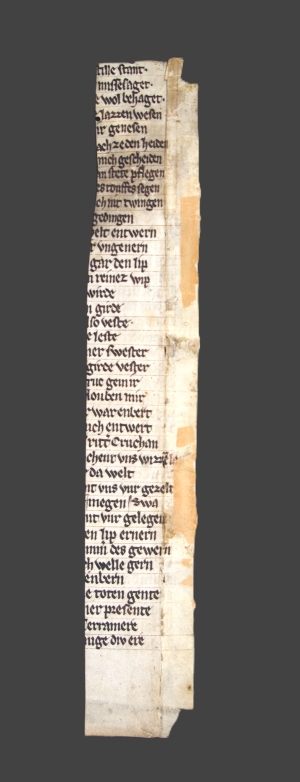 tille stant·
misselager·
e wol behager·
lazzen wesen
ir genesen
ach ze den heiden
mich gescheiden
an stete pflegen
es touffes segen
ch nit twingen
gedingen
welt entwern
t ungenern
gar den lip
n reinez wip
wirde
n girde
lso veste·
e leste
ner swester
girde vester
true gein ir
louben mir
r warenbert
uch entwert
ritt Cruchan
schent uns
r da welt
nt uns vur gezelt
nt vur gelegen
en lip ernern
des gewern
h welle gern
enbern
e toten gente
ner presente
Terramere
uge div ere